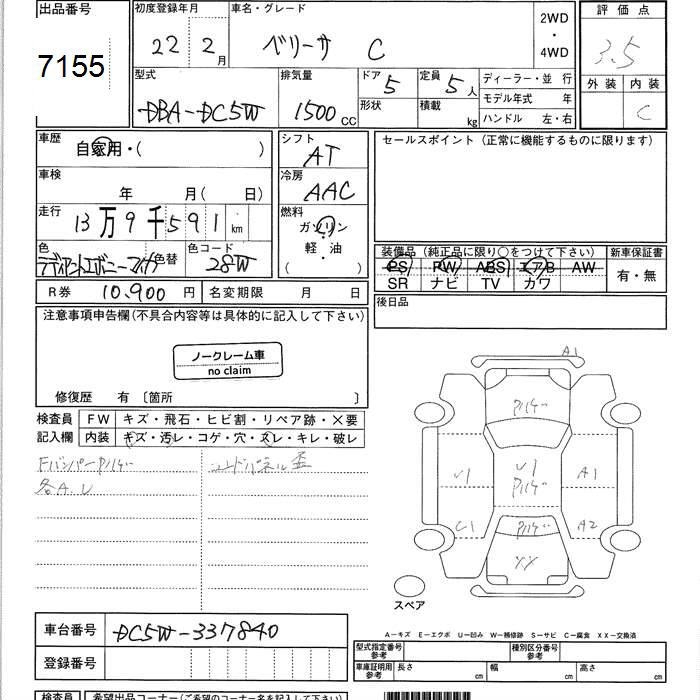 出品番号
7155
初度登録年月
22 2月
車名・グレード
ベリーサ C
2WD
・
4WD
評価点
3.5
外装 内装
C
型式
DBA-DC5W
排気量
1500cc
ドア 5
形状
定員 5人
積載 kg
ディーラー・並行
モデル年式 年
ハンドル 左・右
車歴
自家用・( )
車検
年 月(日)
走行
13万9千591km
色
ラディアントエボニーマイカ 色替
色コード
28W
シフト
AT
冷房
AAC
燃料
ガソリン
軽・油
( )
セールスポイント(正常に機能するものに限ります)
装備品(純正品に限り○をつけて下さい) 新車保証書
PS PW ABS エアB AW
SR ナビ TV カワ
有・無
R券 10,900円 名変期限 月 日
後日品
注意事項申告欄(不具合内容等は具体的に記入して下さい)
ノークレーム車
no claim
修復歴 有 〔箇所 〕
検査員 FW キズ・飛石・ヒビ割・リペア跡・×要
記入欄 内装 キズ・汚レ・コゲ・穴・スレ・キレ・破レ
各A.U
A1
U1
U1
A1
C1
A2
XX
スペア
車台番号 DC5W-337840
登録番号
A-キズ E-エクボ U-凹み W-補修跡 S-サビ C-腐食 XX-交換済
型式指定番号 参考
種別区分番号 参考
車庫証明用 参考 長さ cm 幅 cm 高さ cm
検査員 希望出品コーナー(ご希望のコーナー名を記入して下さい)